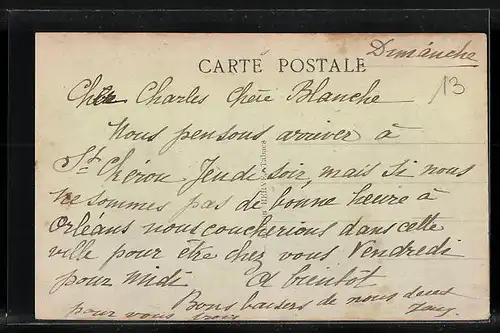 Dimanche
CARTE POSTALE
13
Cher Charles Chère Blanche
Nous pensons arriver à
St Chéron Jeudi soir, mais si nous
ne sommes pas de bonne heure à
Orléans nous coucherions dans cette
ville pour être chez vous Vendredi
pour midi A bientôt
Bons baisers de nous deux
pour vous trois